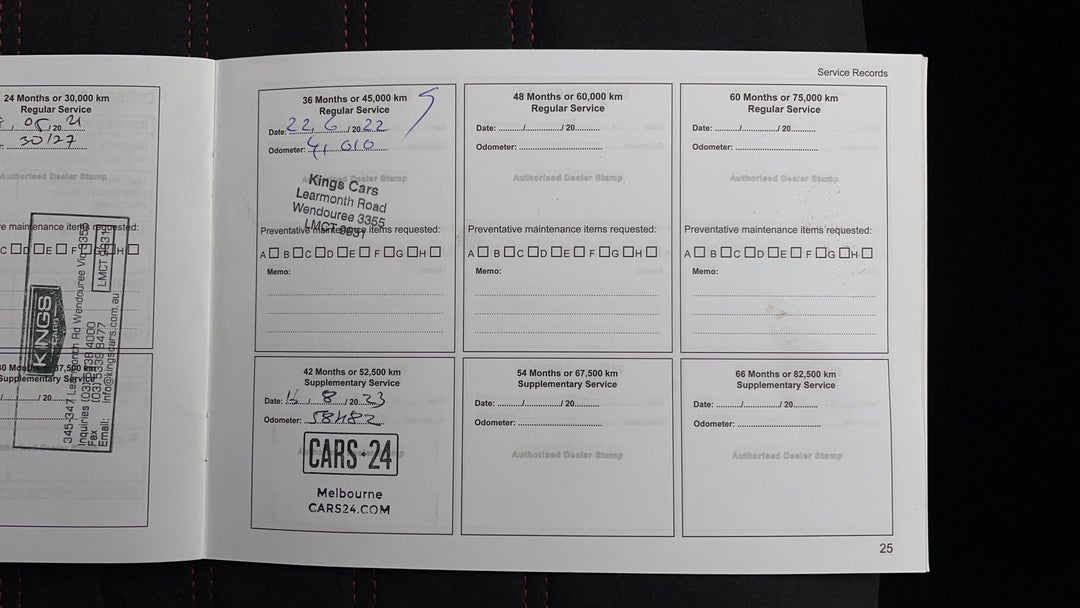 24 Months or 30,000 km
Regular Service
05 / 20 21
30127
Authorised Dealer Stamp
maintenance items requested:
C D E F G H
KINGS
CARS
345-347 Learmonth Rd Wendouree Vic 3355
Inquiries (03) 4000
Fax (03) 5339 9477
Email: info@kingscars.com.au
LMCT 9931
37,500 km
Supplementary Service
/ 20
Service Records
36 Months or 45,000 km
Regular Service
Date: 22 / 6 / 20 22
Odometer: 41 010
Authorised Dealer Stamp
Kings Cars
Learmonth Road
Wendouree 3355
LMCT 9931
Preventative maintenance items requested:
A B C D E F G H
Memo:
48 Months or 60,000 km
Regular Service
Date: ........../............../ 20..........
Odometer: ...................................
Authorised Dealer Stamp
Preventative maintenance items requested:
A B C D E F G H
Memo:
60 Months or 75,000 km
Regular Service
Date: ........../............../ 20..........
Odometer: ...................................
Authorised Dealer Stamp
Preventative maintenance items requested:
A B C D E F G H
Memo:
42 Months or 52,500 km
Supplementary Service
Date: 16 / 8 / 20 23
Odometer: 58482
CARS 24
Melbourne
CARS24.COM
54 Months or 67,500 km
Supplementary Service
Date: ........../............../ 20..........
Odometer: ...................................
Authorised Dealer Stamp
66 Months or 82,500 km
Supplementary Service
Date: ........../............../ 20..........
Odometer: ...................................
Authorised Dealer Stamp
25